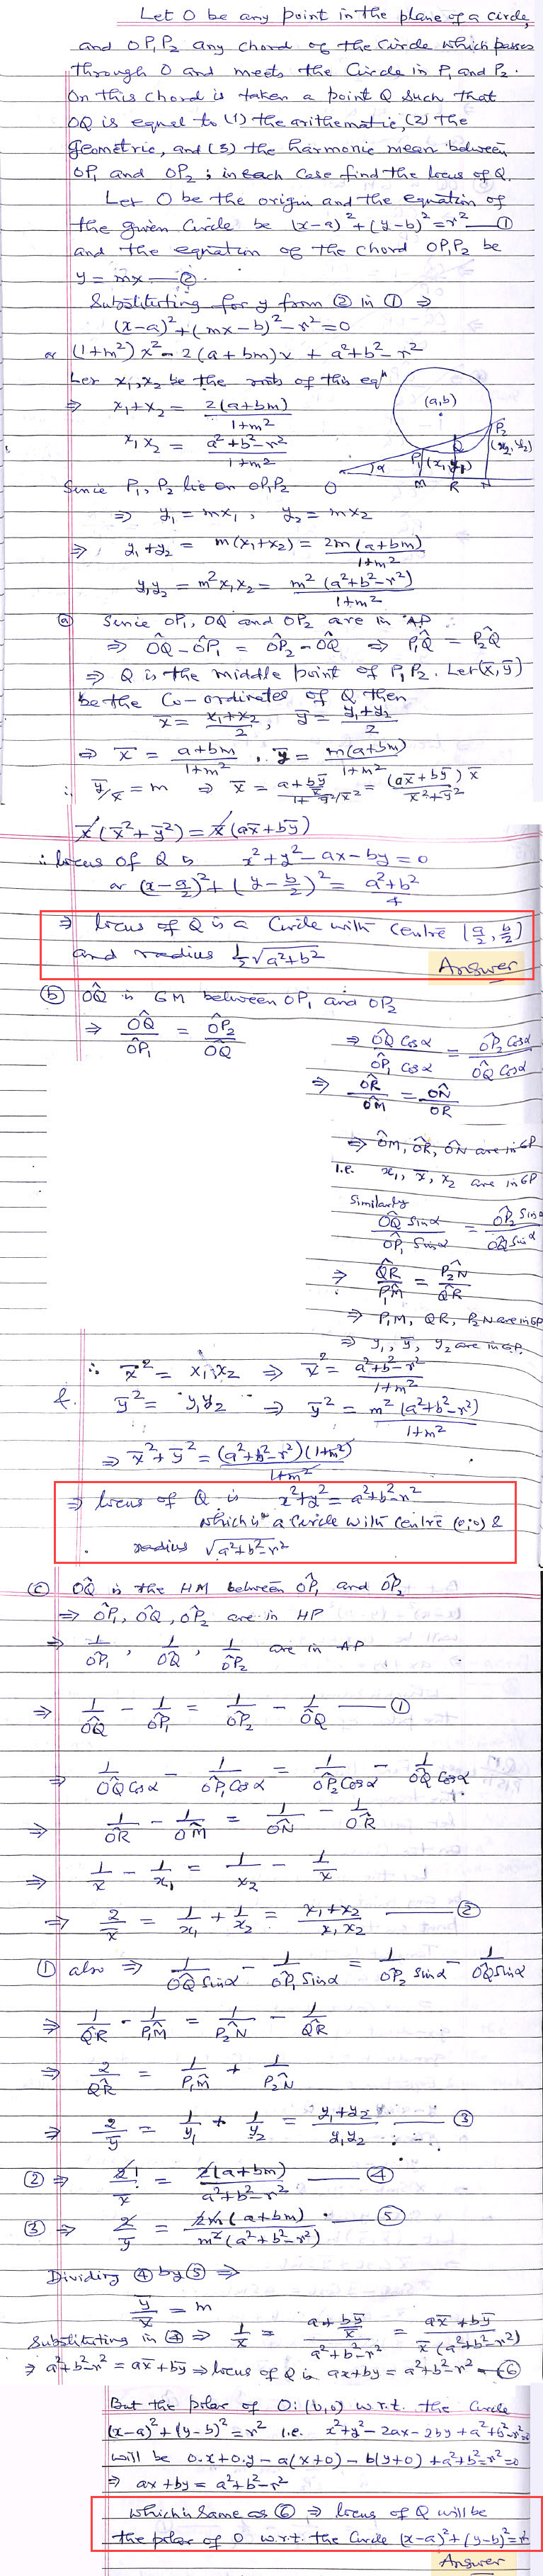 Let O be any point in the plane of a circle,
and OP₁P₂ any chord of the circle which passes
through O and meets the Circle in P₁ and P₂.
On this chord is taken a point Q such that
OQ is equal to (1) the arithematic, (2) the
geometric, and (3) the harmonic mean between
OP₁ and OP₂; in each case find the locus of Q.
Let O be the origin and the equation of
the given circle be (x-a)²+(y-b)²=r² — ①
and the equation of the chord OP₁P₂ be
y = mx — ②
Substituting for y from ② in ① ⇒
(x-a)²+(mx-b)²-r²=0
or (1+m²)x²-2(a+bm)x + a²+b²-r²
Let x₁,x₂ be the roots of this eqⁿ
⇒ x₁+x₂ = 2(a+bm)/(1+m²)
x₁x₂ = (a²+b²-r²)/(1+m²)
(a,b)
P₂
(x₂,y₂)
Q
P₁ (x₁,y₁)
α
O M R N
Since P₁, P₂ lie on OP₁P₂
⇒ y₁ = mx₁, y₂ = mx₂
⇒ y₁+y₂ = m(x₁+x₂) = 2m(a+bm)/(1+m²)
y₁y₂ = m²x₁x₂ = m²(a²+b²-r²)/(1+m²)
ⓐ Since OP₁, OQ and OP₂ are in AP
⇒ OQ̂ - OP̂₁ = OP̂₂ - OQ̂ ⇒ P₁Q̂ = P₂Q̂
⇒ Q is the middle point of P₁P₂. Let (x̄, ȳ)
be the Co-ordinates of Q then
x̄ = (x₁+x₂)/2, ȳ = (y₁+y₂)/2
⇒ x̄ = (a+bm)/(1+m²), ȳ = m(a+bm)/(1+m²)
∴ ȳ/x̄ = m ⇒ x̄ = (a+bȳ/x̄)/(1+ȳ²/x̄²) = (ax̄+bȳ)x̄/(x̄²+ȳ²)
x̄(x̄²+ȳ²) = x̄(ax̄+bȳ)
∴ locus of Q is x²+y²-ax-by=0
or (x-a/2)²+(y-b/2)² = (a²+b²)/4
⇒ locus of Q is a Circle with centre (a/2, b/2)
and radius ½√(a²+b²)
Answer
ⓑ OQ̂ is GM between OP₁ and OP₂
⇒ OQ̂/OP̂₁ = OP̂₂/OQ̂
⇒ OQ̂ Cosα/OP̂₁ Cosα = OP̂₂ Cosα/OQ̂ Cosα
⇒ OR̂/OM̂ = ON̂/OR̂
⇒ OM̂, OR̂, ON̂ are in GP
i.e. x₁, x̄, x₂ are in GP
Similarly
OQ̂ Sinα/OP̂₁ Sinα = OP̂₂ Sinα/OQ̂ Sinα
⇒ QR̂/P₁M̂ = P₂N̂/QR̂
⇒ P₁M, QR, P₂N are in GP
⇒ y₁, ȳ, y₂ are in GP.
∴ x̄² = x₁x₂ ⇒ x̄² = (a²+b²-r²)/(1+m²)
& ȳ² = y₁y₂ ⇒ ȳ² = m²(a²+b²-r²)/(1+m²)
⇒ x̄²+ȳ² = (a²+b²-r²)(1+m²)/(1+m²)
⇒ locus of Q is x²+y² = a²+b²-r²
which is a circle with centre (0,0) &
radius √(a²+b²-r²)
ⓒ OQ̂ is the HM between OP̂₁ and OP̂₂
⇒ OP̂₁, OQ̂, OP̂₂ are in HP
⇒ 1/OP̂₁, 1/OQ̂, 1/OP̂₂ are in AP
⇒ 1/OQ̂ - 1/OP̂₁ = 1/OP̂₂ - 1/OQ̂ — ①
⇒ 1/OQ̂ Cosα - 1/OP̂₁ Cosα = 1/OP̂₂ Cosα - 1/OQ̂ Cosα
⇒ 1/OR̂ - 1/OM̂ = 1/ON̂ - 1/OR̂
⇒ 1/x̄ - 1/x₁ = 1/x₂ - 1/x̄
⇒ 2/x̄ = 1/x₁ + 1/x₂ = (x₁+x₂)/x₁x₂ — ②
① also ⇒ 1/OQ̂ Sinα - 1/OP̂₁ Sinα = 1/OP̂₂ Sinα - 1/OQ̂ Sinα
⇒ 1/QR̂ - 1/P₁M̂ = 1/P₂N̂ - 1/QR̂
⇒ 2/QR̂ = 1/P₁M̂ + 1/P₂N̂
⇒ 2/ȳ = 1/y₁ + 1/y₂ = (y₁+y₂)/y₁y₂ — ③
② ⇒ 2/x̄ = 2(a+bm)/(a²+b²-r²) — ④
③ ⇒ 2/ȳ = 2m(a+bm)/m²(a²+b²-r²) — ⑤
Dividing ④ by ⑤ ⇒
ȳ/x̄ = m
Substituting in ④ ⇒ 1/x̄ = (a+bȳ/x̄)/(a²+b²-r²) = (ax̄+bȳ)/x̄(a²+b²-r²)
⇒ a²+b²-r² = ax̄+bȳ ⇒ locus of Q is ax+by = a²+b²-r² — ⑥
But the polar of O:(0,0) w.r.t. the circle
(x-a)²+(y-b)²=r² i.e. x²+y²-2ax-2by+a²+b²-r²=0
will be 0.x+0.y-a(x+0)-b(y+0)+a²+b²-r²=0
⇒ ax+by = a²+b²-r²
which is same as ⑥ ⇒ locus of Q will be
the polar of O w.r.t. the Circle (x-a)²+(y-b)²=r²
Answer